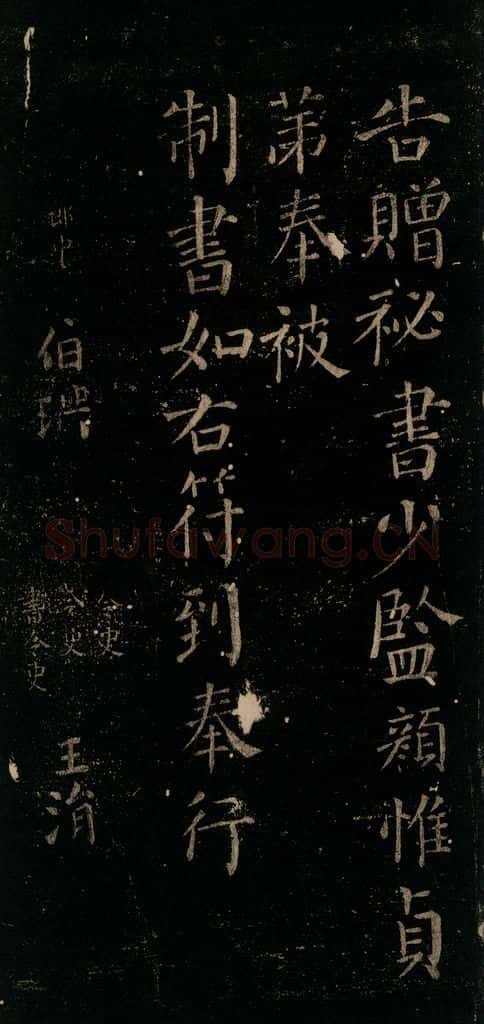 告贈祕書少監顔惟貞
苐奉被
制書如右符到奉行
令史
令史
書令史
王消
郎中
伯
Shufawang.CN